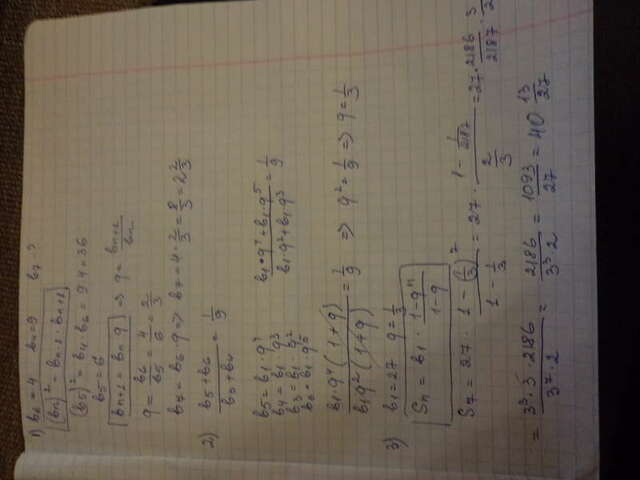 1) b₆ = 4 b₄ = 9 b₇ - ?
(bₙ)² = bₙ₋₁ · bₙ₊₁
(b₅)² = b₄ b₆ = 9 4 = 36
b₅ = 6
bₙ₊₁ = bₙ q => q = bₙ₊₁/bₙ
q = b₆/b₅ = 4/6 = 2/3
b₇ = b₆ · q => b₇ = 4 · 2/3 = 8/3 = 2 2/3
2) (b₅ + b₆)/(b₃ + b₄) = 1/9
b₅ = b₁ q⁴
b₄ = b₁ q³
b₃ = b₁ q²
b₆ = b₁ q⁵
(b₁ · q⁴ + b₁ · q⁵)/(b₁ · q² + b₁ · q³) = 1/9
b₁ · q⁴ (1 + q)/b₁ q² (1 + q) = 1/9 => q² = 1/9 => q = 1/3
3) b₁ = 27 q = 1/3
Sₙ = b₁ · (1 - qⁿ)/(1 - q)
S₇ = 27 · (1 - (1/3)⁷)/(1 - 1/3) = 27 · (1 - 1/2187)/(2/3) = 27 · 2186/2187 · 3/2
= 3³ · 3 · 2186/3⁷ · 2 = 2186/3³ 2 = 1093/27 = 40 13/27